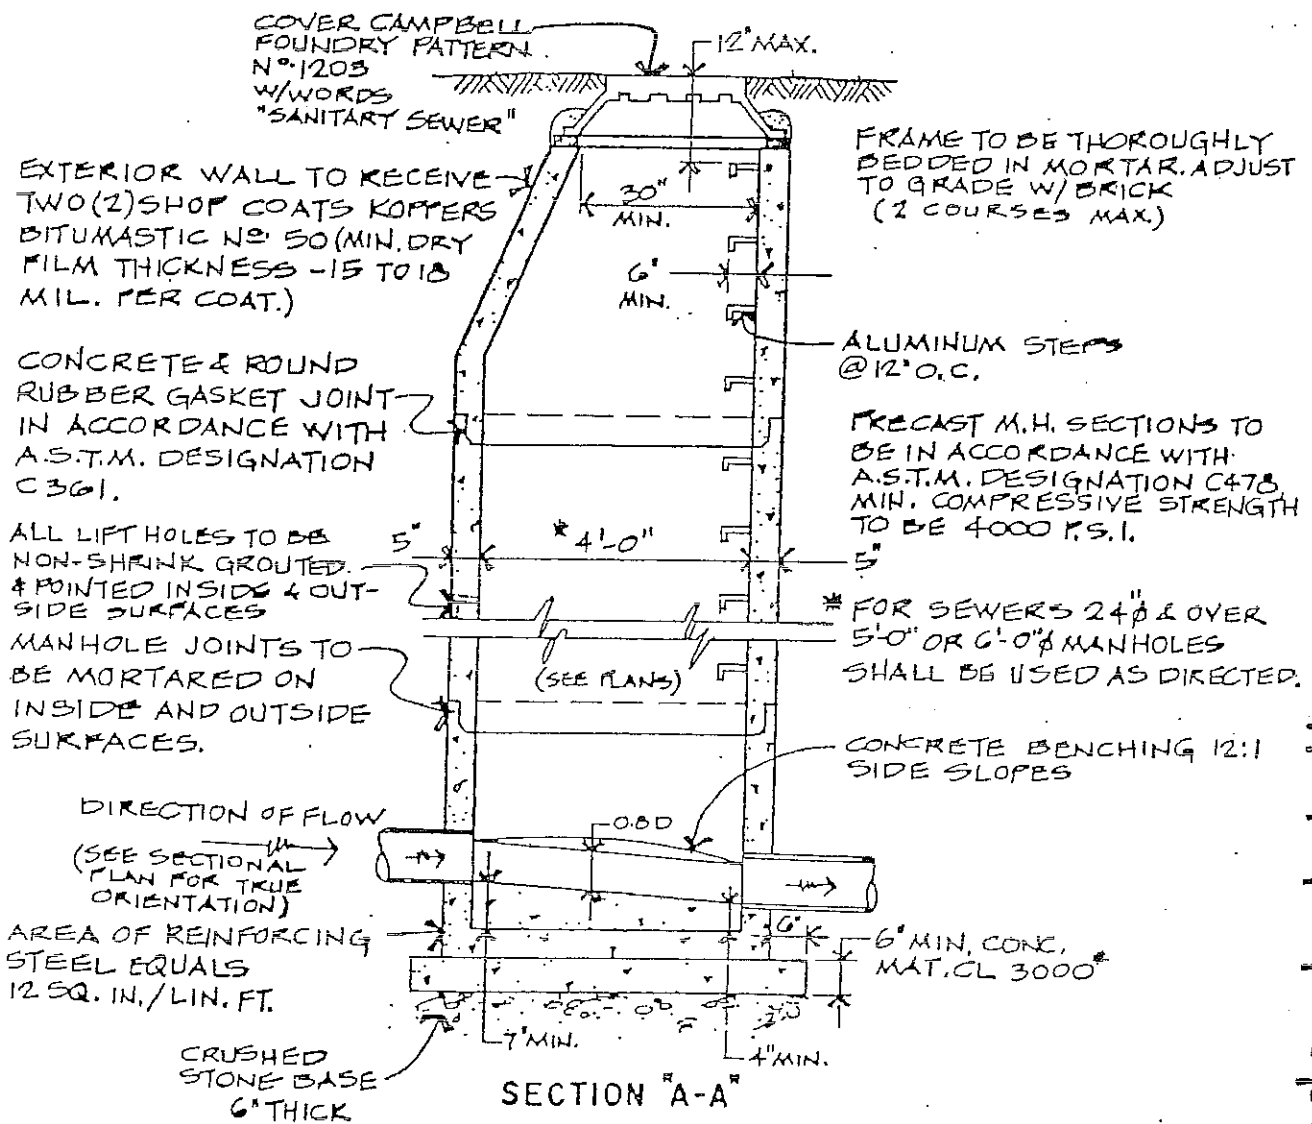 COVER CAMPBELL
FOUNDRY PATTERN
Nº 1203
W/WORDS
"SANITARY SEWER"
12" MAX.
EXTERIOR WALL TO RECEIVE
TWO (2) SHOP COATS KOPPERS
BITUMASTIC Nº 50 (MIN. DRY
FILM THICKNESS - 15 TO 18
MIL. PER COAT.)
30"
MIN.
6"
MIN.
FRAME TO BE THOROUGHLY
BEDDED IN MORTAR. ADJUST
TO GRADE W/ BRICK
(2 COURSES MAX.)
ALUMINUM STEPS
@ 12" O.C.
CONCRETE & ROUND
RUBBER GASKET JOINT
IN ACCORDANCE WITH
A.S.T.M. DESIGNATION
C361.
PRECAST M.H. SECTIONS TO
BE IN ACCORDANCE WITH
A.S.T.M. DESIGNATION C478
MIN. COMPRESSIVE STRENGTH
TO BE 4000 P.S.I.
ALL LIFT HOLES TO BE
NON-SHRINK GROUTED
& POINTED INSIDE & OUT-
SIDE SURFACES
5"
* 4'-0"
5"
* FOR SEWERS 24"ø & OVER
5'-0" OR 6'-0"ø MANHOLES
SHALL BE USED AS DIRECTED.
MANHOLE JOINTS TO
BE MORTARED ON
INSIDE AND OUTSIDE
SURFACES.
(SEE PLANS)
CONCRETE BENCHING 12:1
SIDE SLOPES
DIRECTION OF FLOW
(SEE SECTIONAL
PLAN FOR TRUE
ORIENTATION)
0.8D
AREA OF REINFORCING
STEEL EQUALS
12 SQ. IN./LIN. FT.
6"
6" MIN. CONC.
MAT. CL 3000#
7" MIN.
4" MIN.
CRUSHED
STONE BASE
6" THICK
SECTION "A-A"